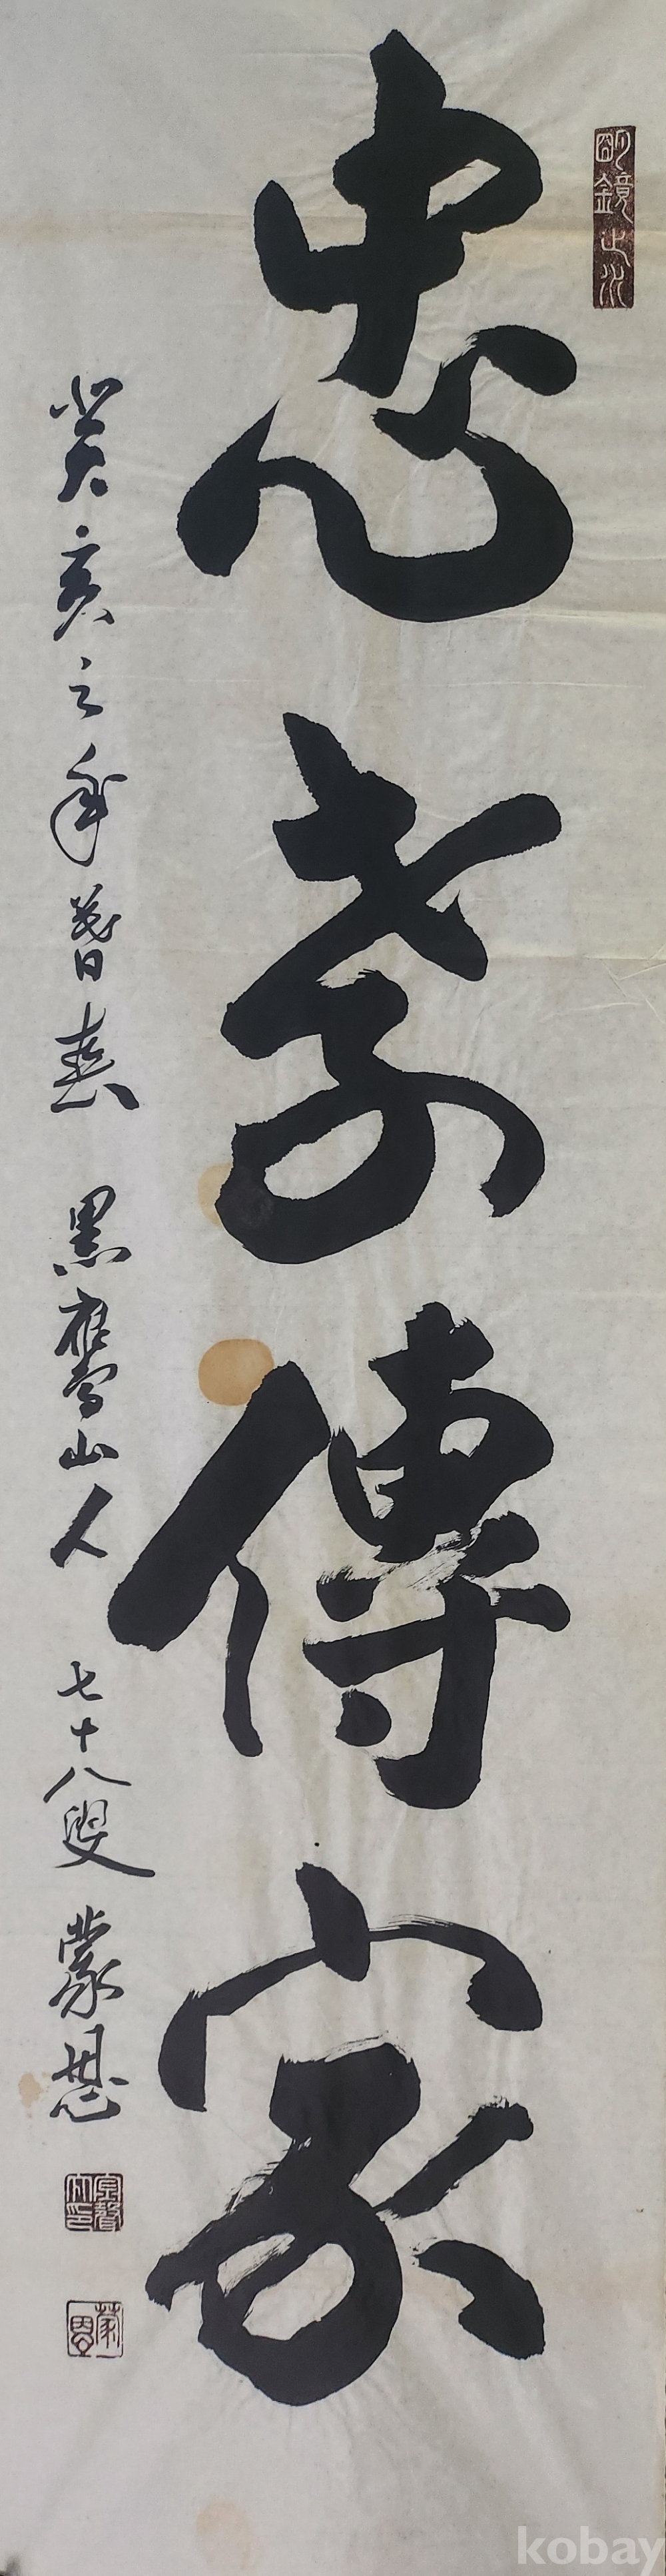 明鏡止水
忠孝傳家
癸亥之年暮春 黑鷹山人 七十八叟 蒙恩
蒙恩
kobay